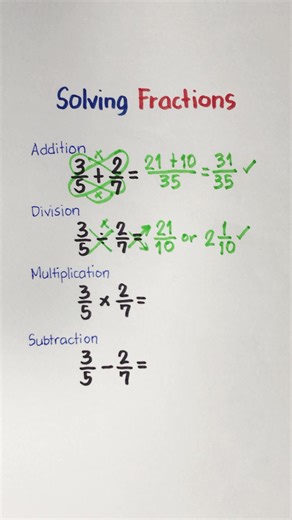 Solving Fractions
Addition
3/5 + 2/7 = 21 + 10/35 = 31/35 ✓
Division
3/5 ÷ 2/7 = 21/10 or 2 1/10 ✓
Multiplication
3/5 × 2/7 =
Subtraction
3/5 − 2/7 =